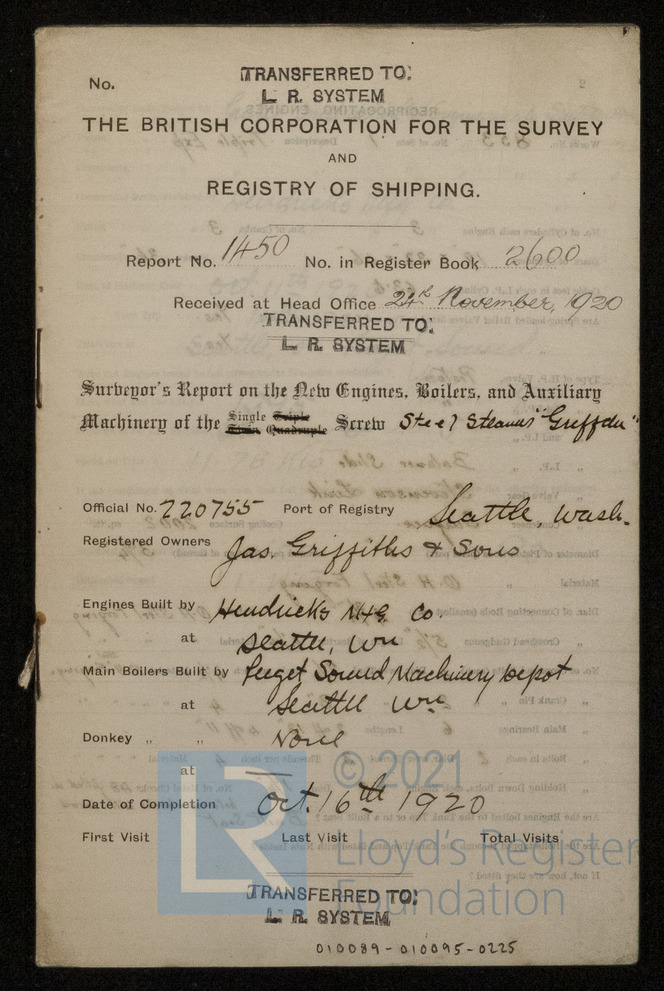 TRANSFERRED TO:
No.
L. R. SYSTEM
THE BRITISH CORPORATION FOR THE SURVEY
AND
REGISTRY OF SHIPPING.
Report No. 1450 No. in Register Book 2600
Received at Head Office 24th November, 1920
TRANSFERRED TO:
L. R. SYSTEM
Surveyor's Report on the New Engines, Boilers, and Auxiliary
Machinery of the Single Triple Twin Quadruple Screw Steel Steamer "Griffdu"
Official No. 220755 Port of Registry Seattle, Wash.
Registered Owners Jas. Griffiths & Sons
Engines Built by Hendricks Mfg. Co.
at Seattle, Wn
Main Boilers Built by Puget Sound Machinery Depot
at Seattle Wn
Donkey " " None
at —
Date of Completion Oct. 16th 1920
First Visit Last Visit Total Visits
© 2021
Lloyd's Register
Foundation
LR
TRANSFERRED TO:
L. R. SYSTEM
010089-010095-0225